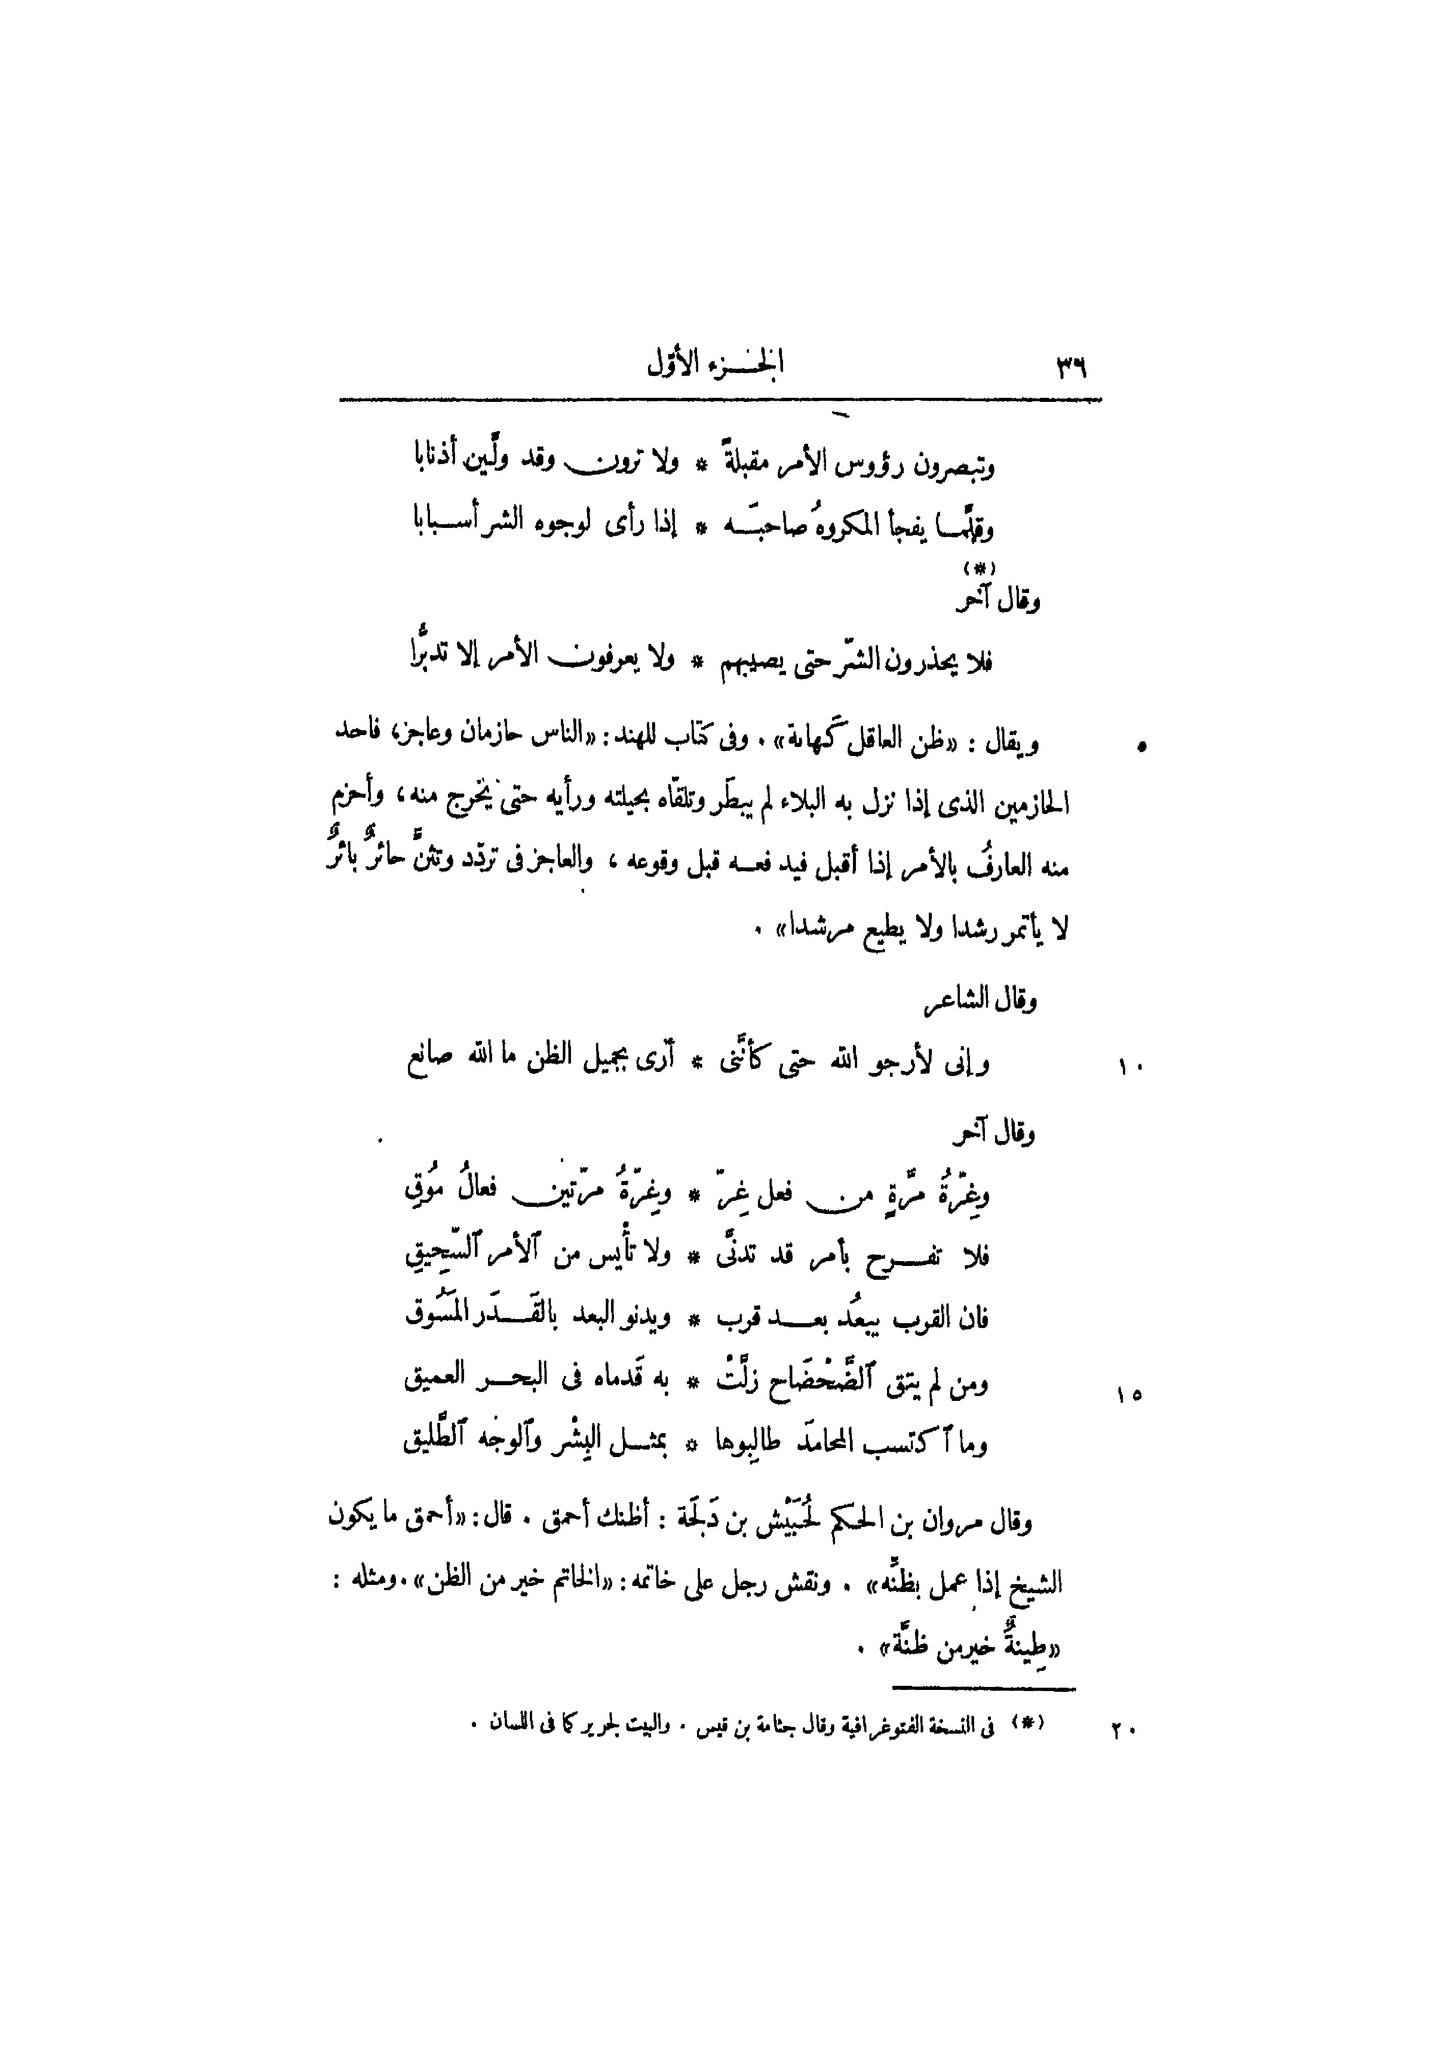 ٣٦ الجزء الأوّل
وتبصرون رؤوس الأمر مقبلةً * ولا ترون وقد ولَّين أذنابا
وقلَّما يفجأ المكروهُ صاحبَه * إذا رأى لوجوه الشر أسبابا
وقال آخر (*)
فلا يحذرون الشرّ حتى يصيبهم * ولا يعرفون الأمر إلا تدبُّرا
ويقال : «ظن العاقل كَهانة» . وفى كتاب للهند : «الناس حازمان وعاجز، فاحد ٥
الحازمين الذى إذا نزل به البلاء لم يبطَر وتلقّاه بحيلته ورأيه حتى يخرج منه، وأحزم
منه العارفُ بالأمر إذا أقبل فيدفعه قبل وقوعه ، والعاجز فى تردّد وتثنٍّ حائرٌ بائرٌ
لا يأتمر رشدا ولا يطيع مرشدا» .
وقال الشاعر
وإنى لأرجو الله حتى كأنَّنى * أرى بجميل الظن ما الله صانع ١٠
وقال آخر
وغِرّةُ مرَّةٍ من فعل غِرّ * وغِرّةُ مرّتين فعالُ مُوقِ
فلا تفرح بأمر قد تدنَّى * ولا تأْيس من ٱلأمر ٱلسّحِيقِ
فان القرب يبعُد بعد قرب * ويدنو البعد بالقَدَر المَسُوق
ومن لم يتق ٱلضَّحْضَاح زلَّتْ * به قَدماه فى البحر العميق ١٥
وما ٱكتسب المحامدَ طالِبوها * بمثل البِشْر وٱلوجه ٱلطَّليق
وقال مروان بن الحكم لحُبَيْش بن دَلَجَة : أظنك أحمق . قال : «أحمق ما يكون
الشيخ إذا عمل بظنِّه» . ونقش رجل على خاتمه : «الخاتم خير من الظن» . ومثله :
«طِينةٌ خير من ظنَّة» .
(*) فى النسخة الفتوغرافية وقال جثامة بن قيس . والبيت لجرير كما فى اللسان . ٢٠